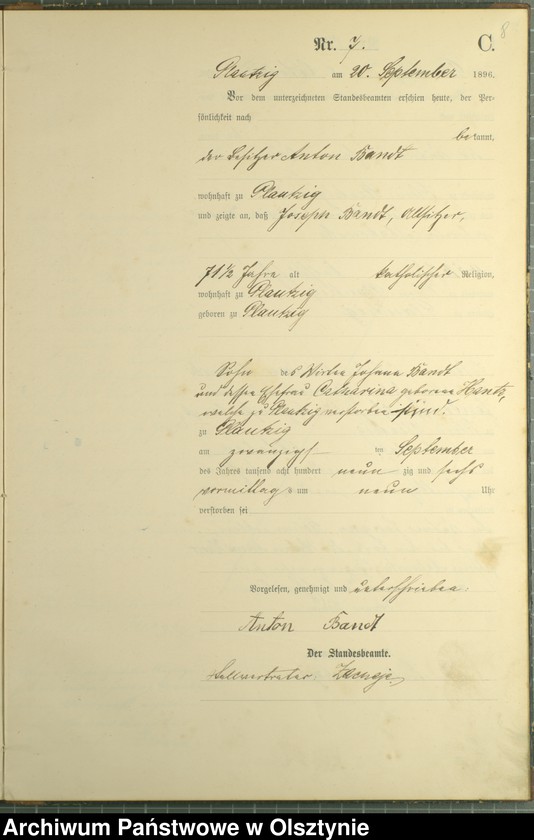 8
Nr. 7. C.
Plautzig am 20. September 1896.
Vor dem unterzeichneten Standesbeamten erschien heute, der Per-
sönlichkeit nach
bekannt,
der Besitzer Anton Bandt
wohnhaft zu Plautzig
und zeigte an, daß Joseph Bandt, Altsitzer,
71 1/2 Jahre alt katholischer Religion,
wohnhaft zu Plautzig
geboren zu Plautzig
Sohn des Wirten Johann Bandt
und dessen Ehefrau Catharina geborene
welche zu Plautzig verstorben sind.
zu Plautzig
am zwanzigsten September
des Jahres tausend acht hundert neun zig und sechs
vormittags um neun Uhr
verstorben sei
Vorgelesen, genehmigt und unterschrieben.
Anton Bandt
Der Standesbeamte.
Stellvertreter.
Archiwum Państwowe w Olsztynie